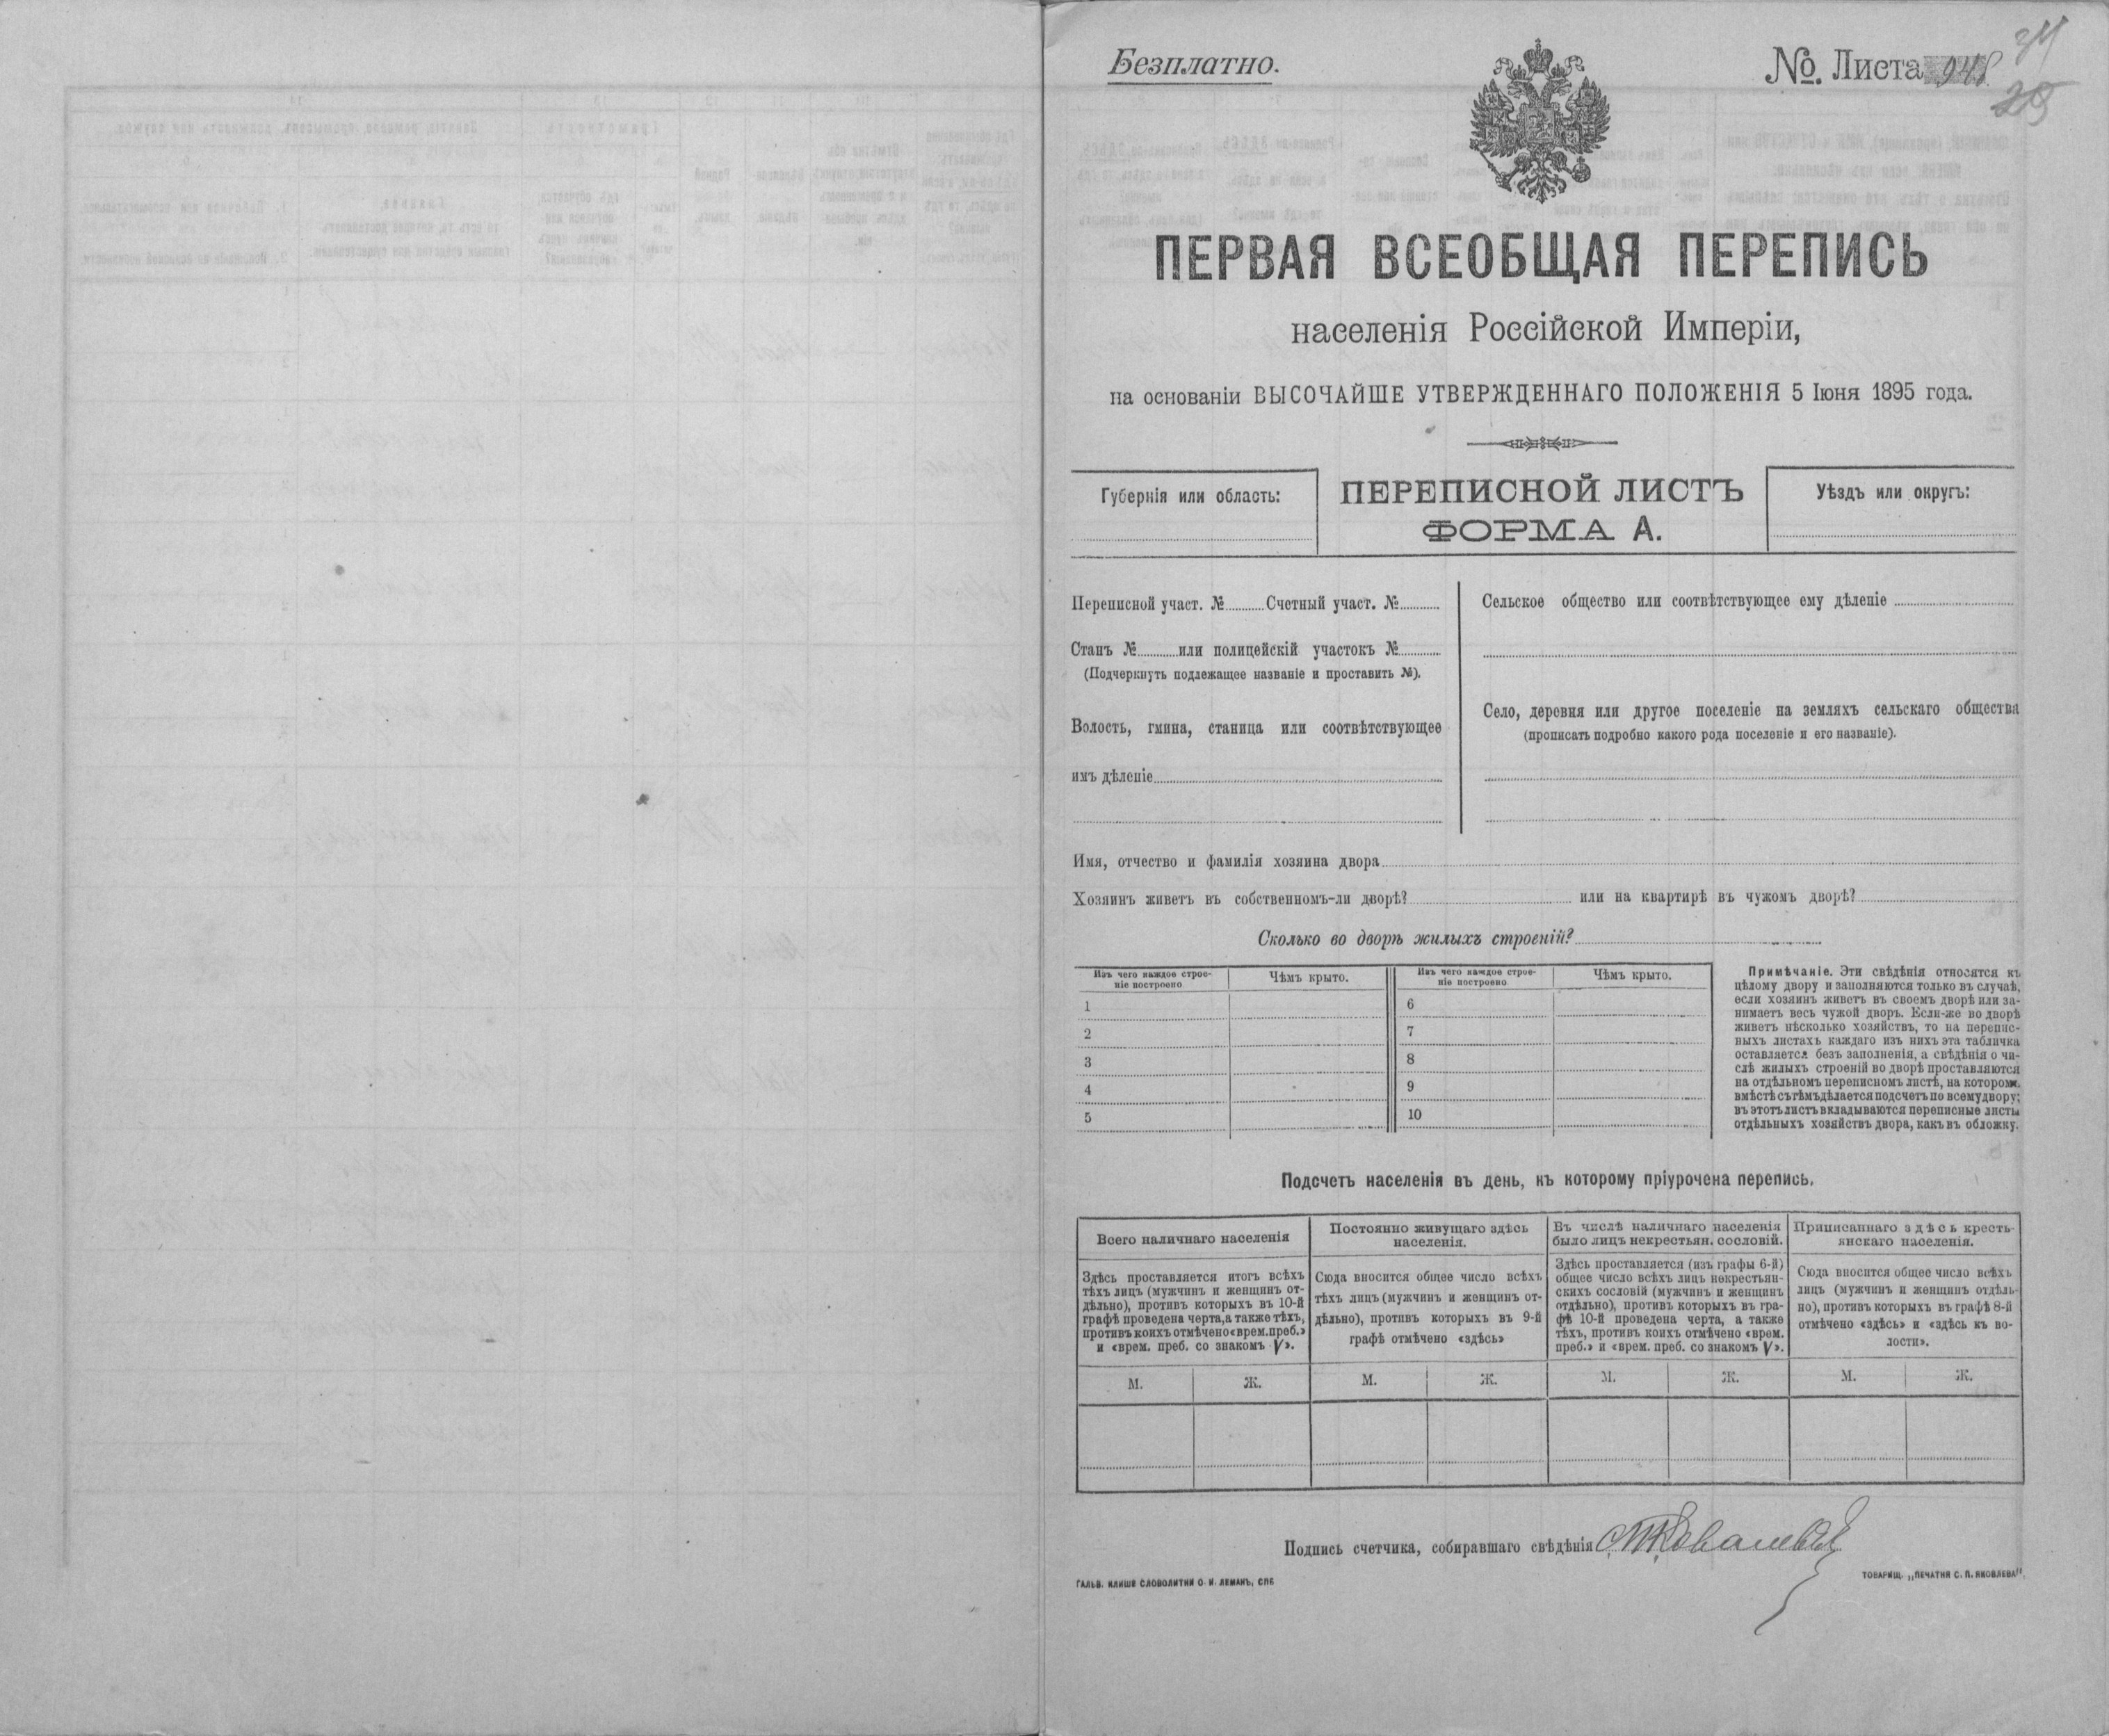 Безплатно.
№. Листа
34
ПЕРВАЯ ВСЕОБЩАЯ ПЕРЕПИСЬ
населенія Россійской Имперіи,
на основаніи ВЫСОЧАЙШЕ УТВЕРЖДЕННАГО ПОЛОЖЕНІЯ 5 Іюня 1895 года.
Губернія или область:
ПЕРЕПИСНОЙ ЛИСТЪ
ФОРМА А.
Уѣздъ или округъ:
Переписной участ. № Счетный участ. №
Станъ № или полицейскій участокъ №
(Подчеркнуть подлежащее названіе и проставить №).
Волость, гмина, станица или соотвѣтствующее
имъ дѣленіе
Сельское общество или соотвѣтствующее ему дѣленіе
Село, деревня или другое поселеніе на земляхъ сельскаго общества
(прописать подробно какого рода поселеніе и его названіе).
Имя, отчество и фамилія хозяина двора
Хозяинъ живетъ въ собственномъ-ли дворѣ? или на квартирѣ въ чужомъ дворѣ?
Сколько во дворѣ жилыхъ строеній?
Изъ чего каждое строе-
ніе построено
Чѣмъ крыто.
Изъ чего каждое строе-
ніе построено
Чѣмъ крыто.
1
2
3
4
5
6
7
8
9
10
Примѣчаніе. Эти свѣдѣнія относятся къ
цѣлому двору и заполняются только въ случаѣ,
если хозяинъ живетъ въ своемъ дворѣ или за-
нимаетъ весь чужой дворъ. Если-же во дворѣ
живетъ нѣсколько хозяйствъ, то на перепис-
ныхъ листахъ каждаго изъ нихъ эта табличка
оставляется безъ заполненія, а свѣдѣнія о чи-
слѣ жилыхъ строеній во дворѣ проставляются
на отдѣльномъ переписномъ листѣ, на которомъ
вмѣстѣ съ тѣмъ дѣлается подсчетъ по всему двору;
въ этотъ листъ вкладываются переписные листы
отдѣльныхъ хозяйствъ двора, какъ въ обложку.
Подсчетъ населенія въ день, къ которому пріурочена перепись.
Всего наличнаго населенія
Здѣсь проставляется итогъ всѣхъ
тѣхъ лицъ (мужчинъ и женщинъ от-
дѣльно), противъ которыхъ въ 10-й
графѣ проведена черта, а также тѣхъ,
противъ коихъ отмѣчено «врем. преб.»
и «врем. преб. со знакомъ V».
Постоянно живущаго здѣсь
населенія.
Сюда вносится общее число всѣхъ
тѣхъ лицъ (мужчинъ и женщинъ от-
дѣльно), противъ которыхъ въ 9-й
графѣ отмѣчено «здѣсь»
Въ числѣ наличнаго населенія
было лицъ некрестьян. сословій.
Здѣсь проставляется (изъ графы 6-й)
общее число всѣхъ лицъ некрестьян-
скихъ сословій (мужчинъ и женщинъ
отдѣльно), противъ которыхъ въ гра-
фѣ 10-й проведена черта, а также
тѣхъ, противъ коихъ отмѣчено «врем.
преб.» и «врем. преб. со знакомъ V».
Приписаннаго здѣсь кресть-
янскаго населенія.
Сюда вносится общее число всѣхъ
лицъ (мужчинъ и женщинъ отдѣль-
но), противъ которыхъ въ графѣ 8-й
отмѣчено «здѣсь» и «здѣсь къ во-
лости».
М. Ж. М. Ж. М. Ж. М. Ж.
Подпись счетчика, собиравшаго свѣдѣнія
ГАЛЬВ. КЛИШЕ СЛОВОЛИТНИ О. И. ЛЕМАНЪ, СПБ
ТОВАРИЩ. „ПЕЧАТНЯ С. П. ЯКОВЛЕВА"